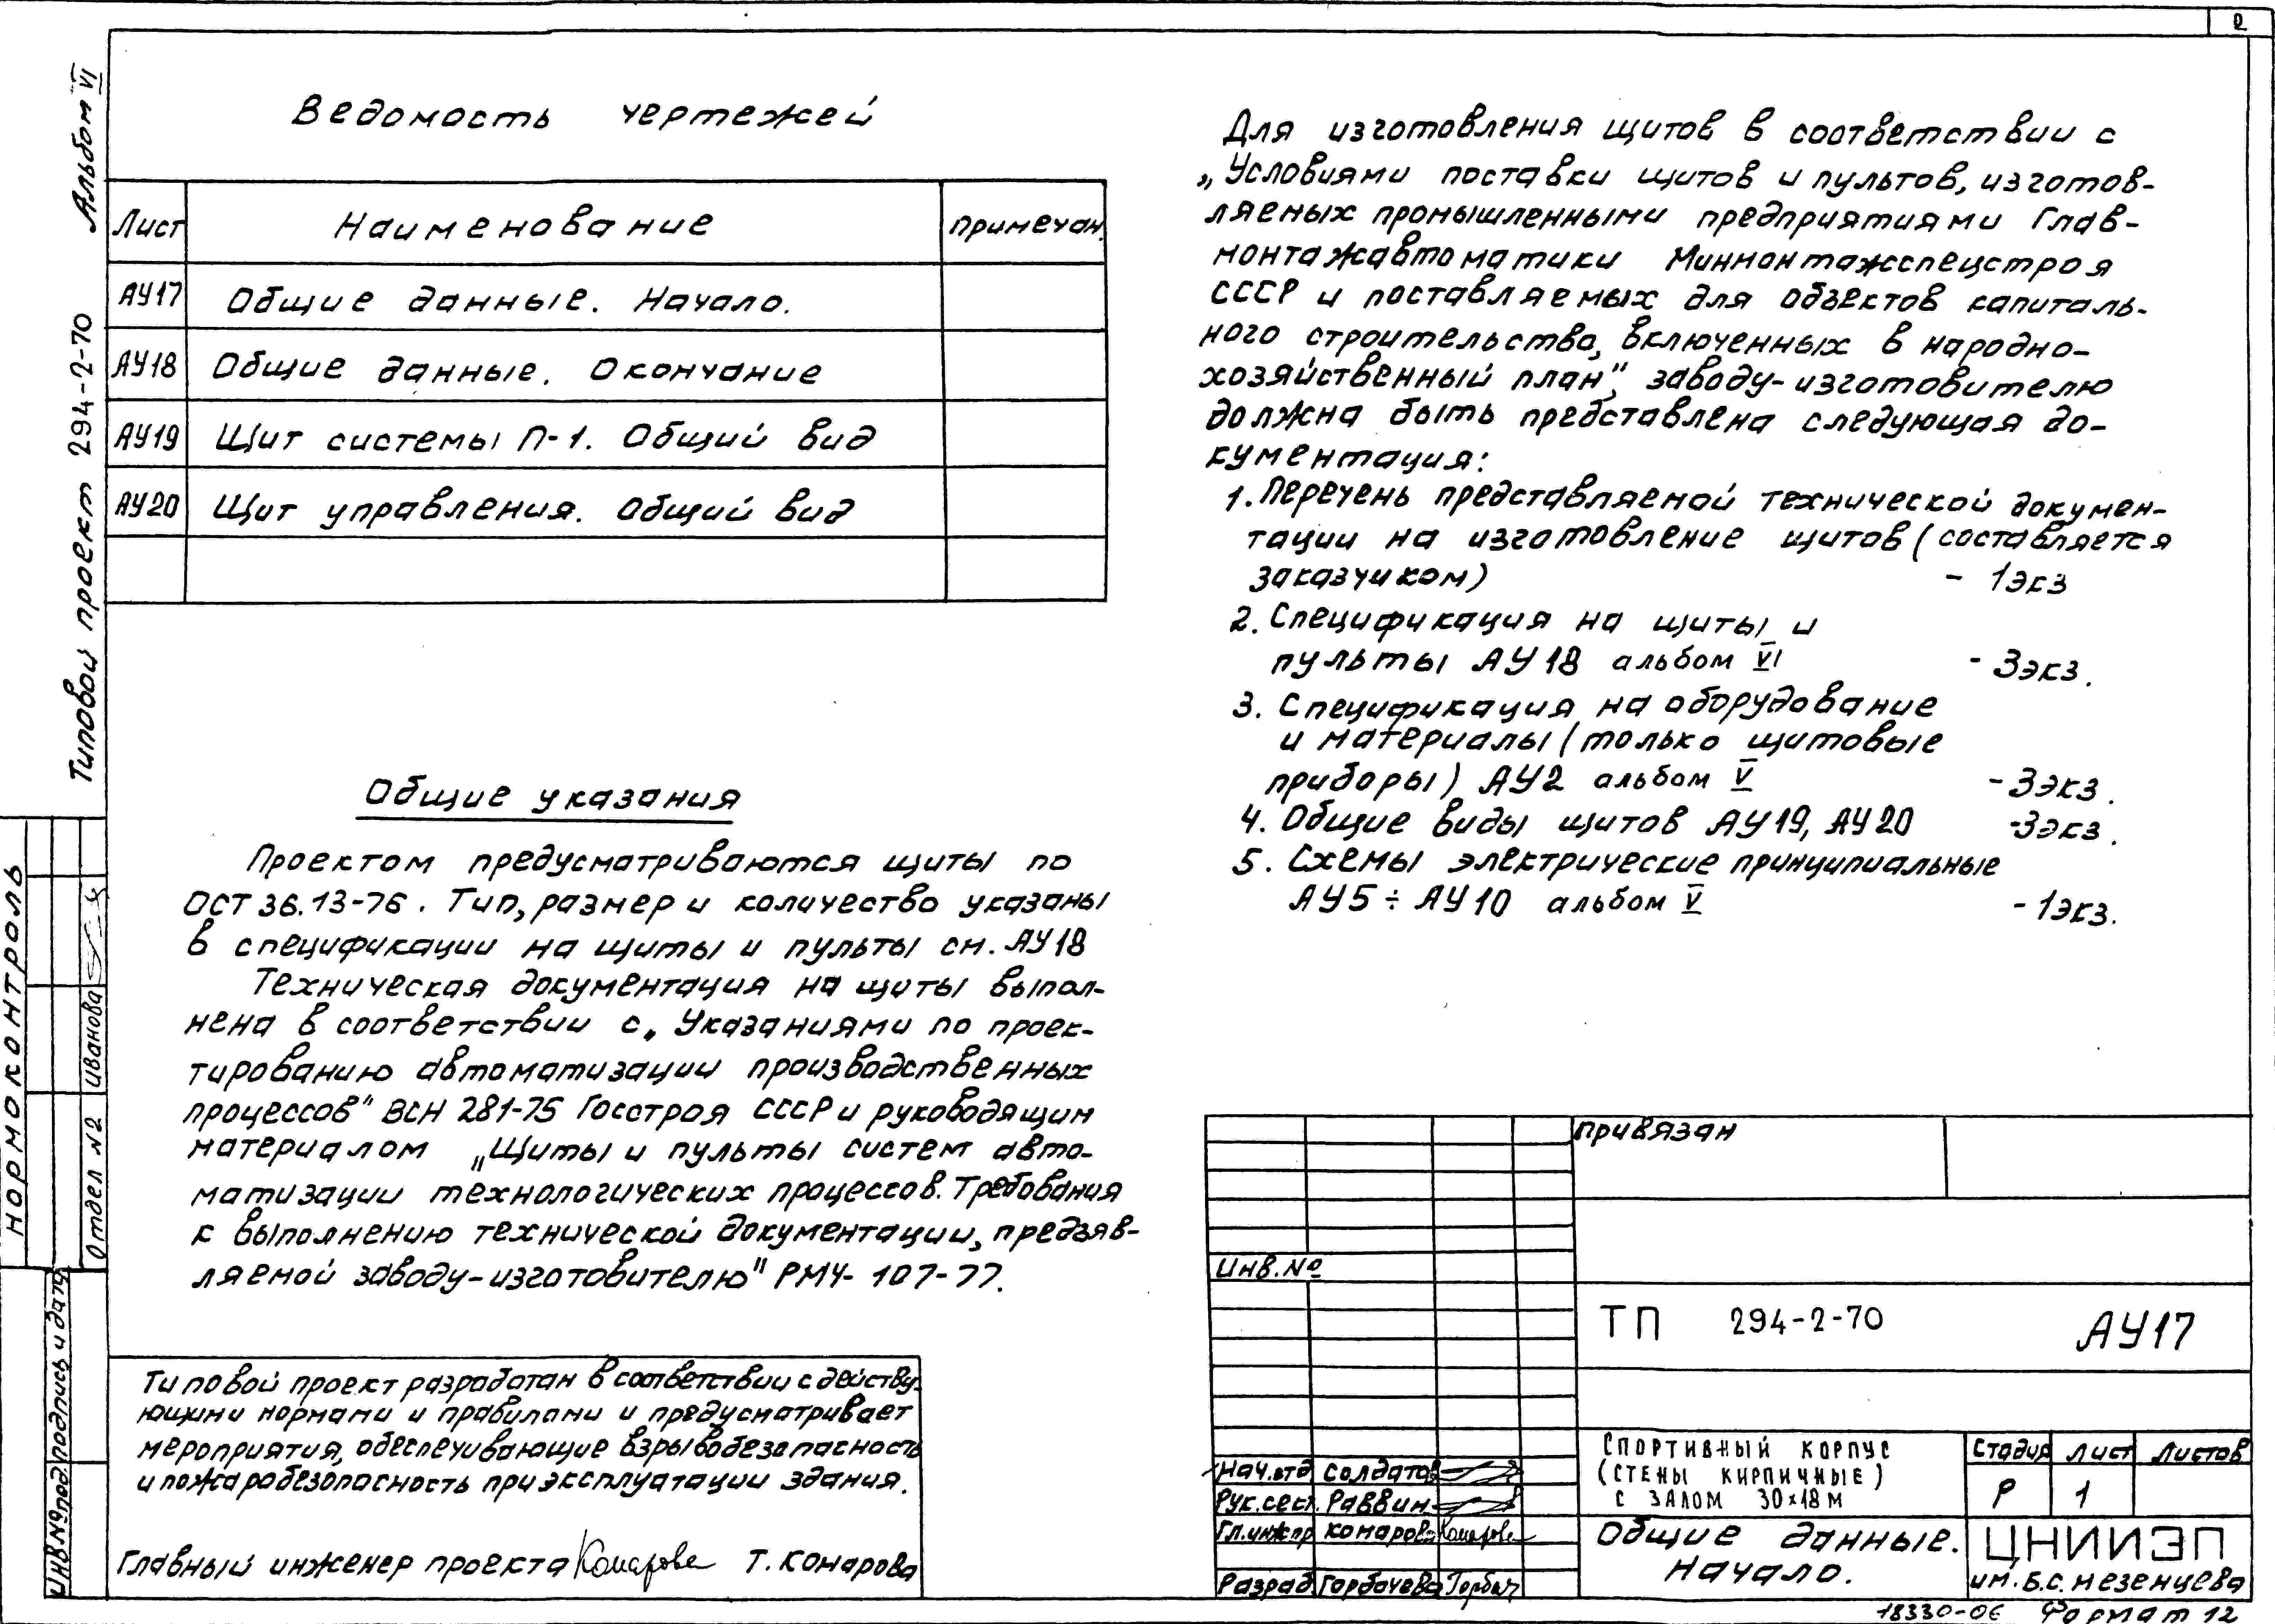 2
Альбом VI
Типовой проект 294-2-70
Ведомость чертежей
Лист Наименование Примечан.
АУ17 Общие данные. Начало.
АУ18 Общие данные. Окончание
АУ19 Щит системы П-1. Общий вид
АУ20 Щит управления. Общий вид
Общие указания
Проектом предусматриваются щиты по
ОСТ 36.13-76. Тип, размер и количество указаны
в спецификации на щиты и пульты см. АУ18
Техническая документация на щиты выпол-
нена в соответствии с „Указаниями по проек-
тированию автоматизации производственных
процессов" ВСН 281-75 Госстроя СССР и руководящим
материалом „Щиты и пульты систем авто-
матизации технологических процессов. Требования
к выполнению технической документации, предъяв-
ляемой заводу-изготовителю" РМ4-107-77.
Типовой проект разработан в соответствии с действу-
ющими нормами и правилами и предусматривает
мероприятия, обеспечивающие взрывобезопасность
и пожаробезопасность при эксплуатации здания.
Главный инженер проекта Комарова Т. Комарова
Для изготовления щитов в соответствии с
„Условиями поставки щитов и пультов, изготов-
ляемых промышленными предприятиями Глав-
монтажавтоматики Минмонтажспецстроя
СССР и поставляемых для объектов капиталь-
ного строительства, включенных в народно-
хозяйственный план", заводу-изготовителю
должна быть представлена следующая до-
кументация:
1. Перечень представляемой технической докумен-
тации на изготовление щитов (составляется
заказчиком) - 1экз
2. Спецификация на щиты и
пульты АУ18 альбом VI - 3экз.
3. Спецификация на оборудование
и материалы (только щитовые
приборы) АУ2 альбом V - 3экз.
4. Общие виды щитов АУ19, АУ20 - 3экз.
5. Схемы электрические принципиальные
АУ5 ÷ АУ10 альбом V - 1экз.
Привязан
Инв. №
ТП 294-2-70 АУ17
Нач.отд Солдатов
Рук.сект. Раввин
Гл.инж.пр Комарова Комарова
Разраб. Горбачева Горбач
Спортивный корпус
(стены кирпичные)
с залом 30×18 м
Стадия Лист Листов
Р 1
Общие данные.
Начало.
ЦНИИЭП
им. Б.С. Мезенцева
18330-06 Формат 12
Нормоконтроль
Отдел №2 Иванова
Инв № под Подпись и дата